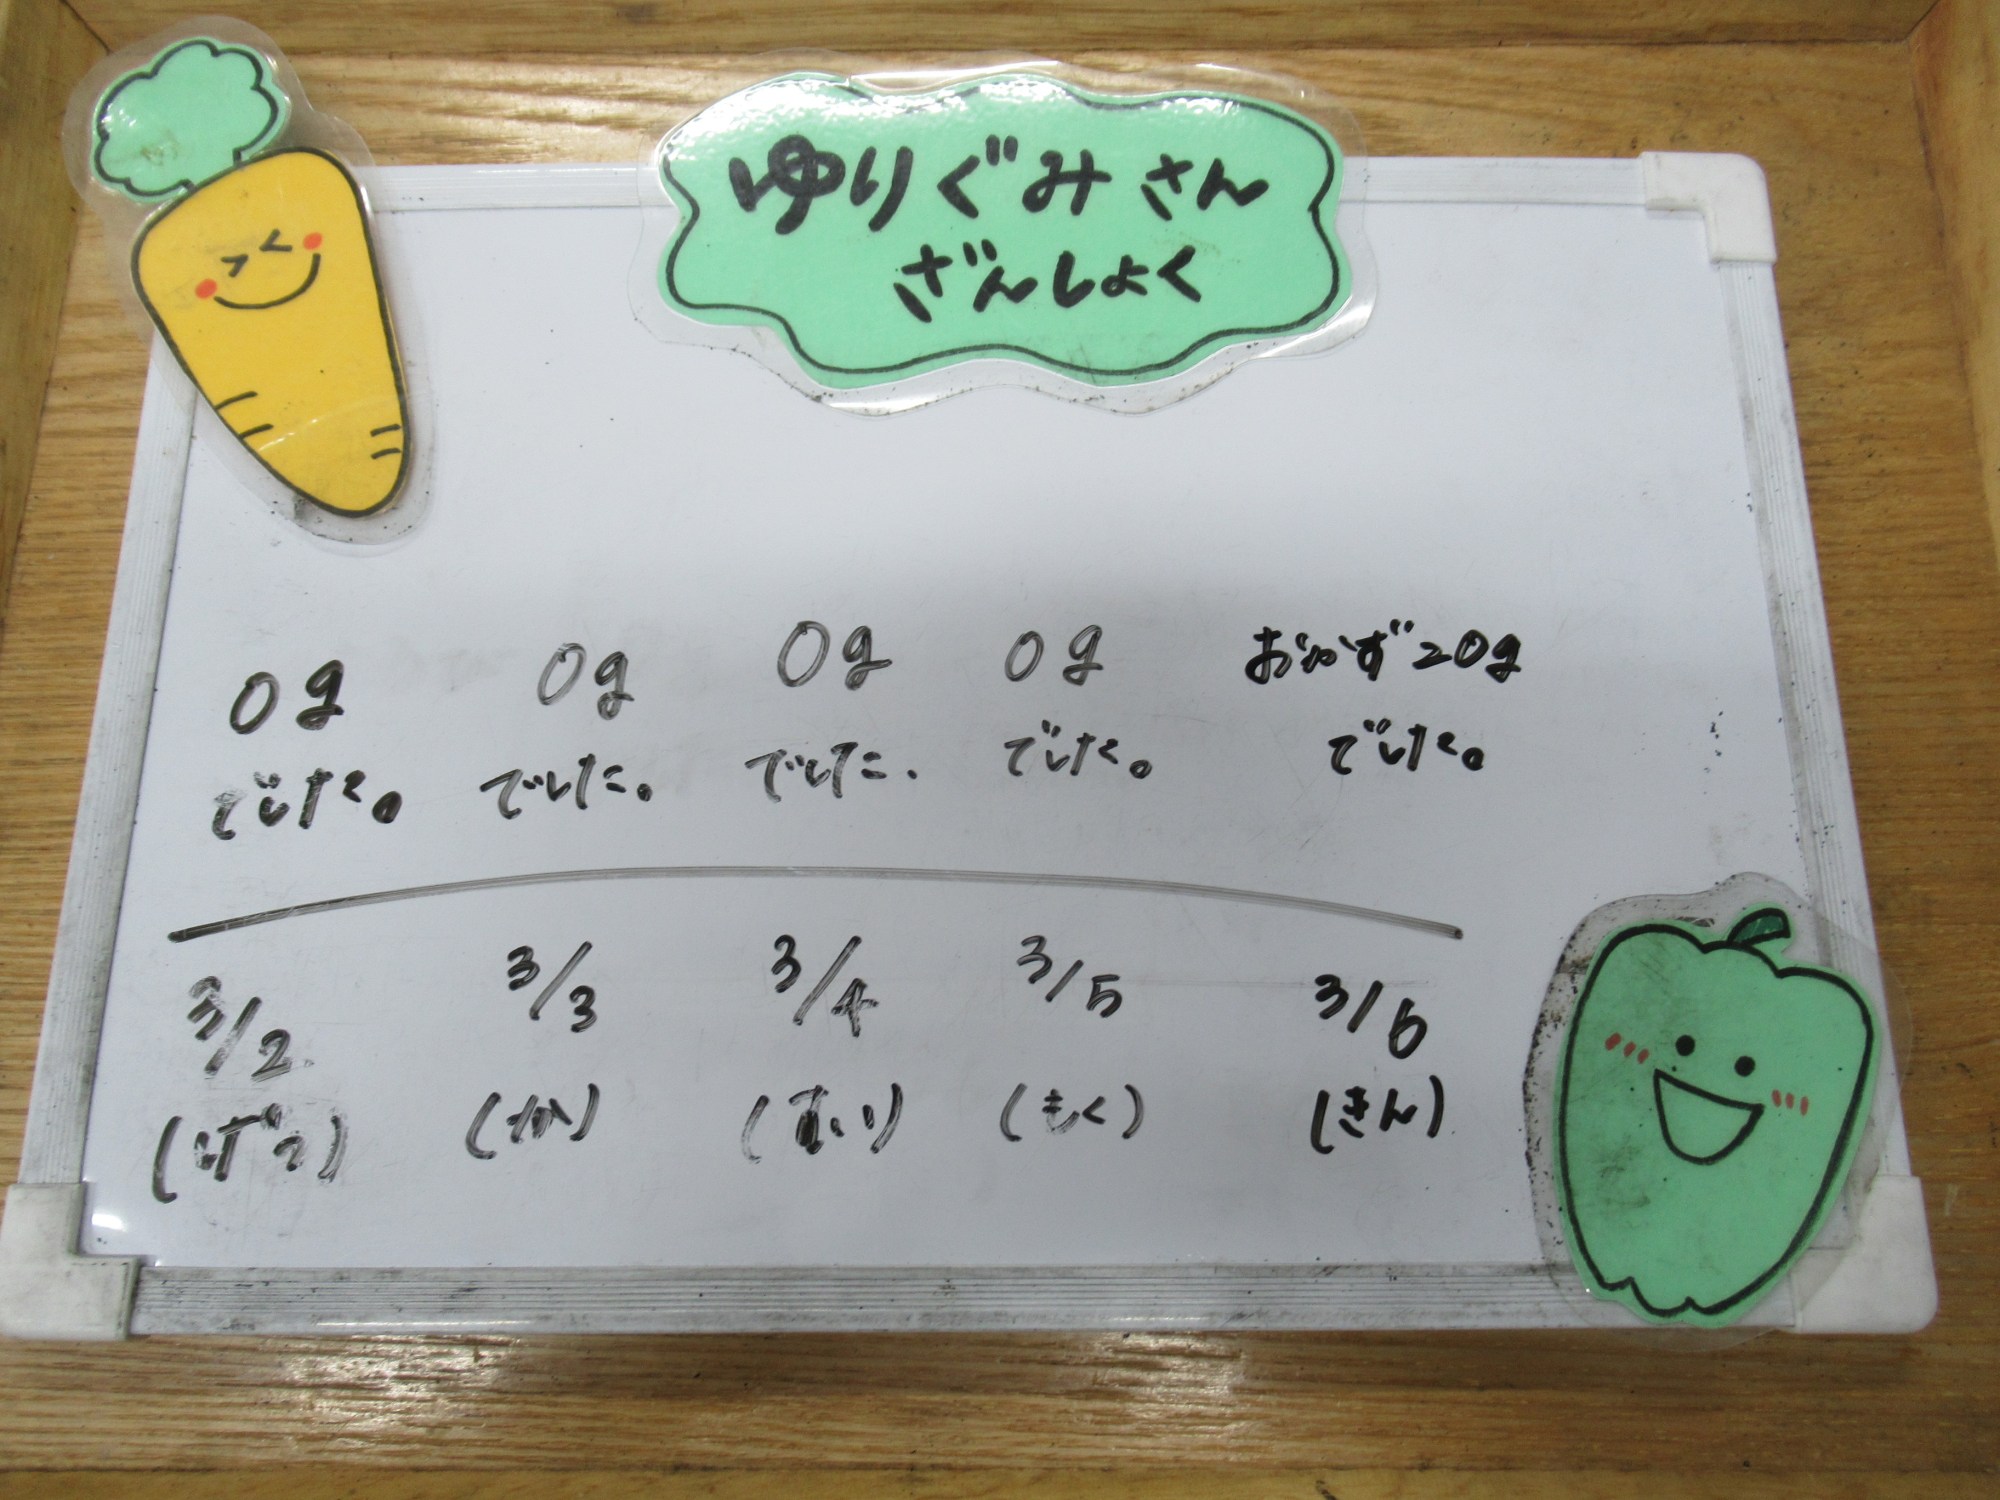 ゆりぐみさん
ざんしょく
0g 0g 0g 0g おかず20g
でした。 でした。 でした. でした。 でした。
3/2 3/3 3/4 3/5 3/6
(げつ) (か) (すい) (もく) (きん)